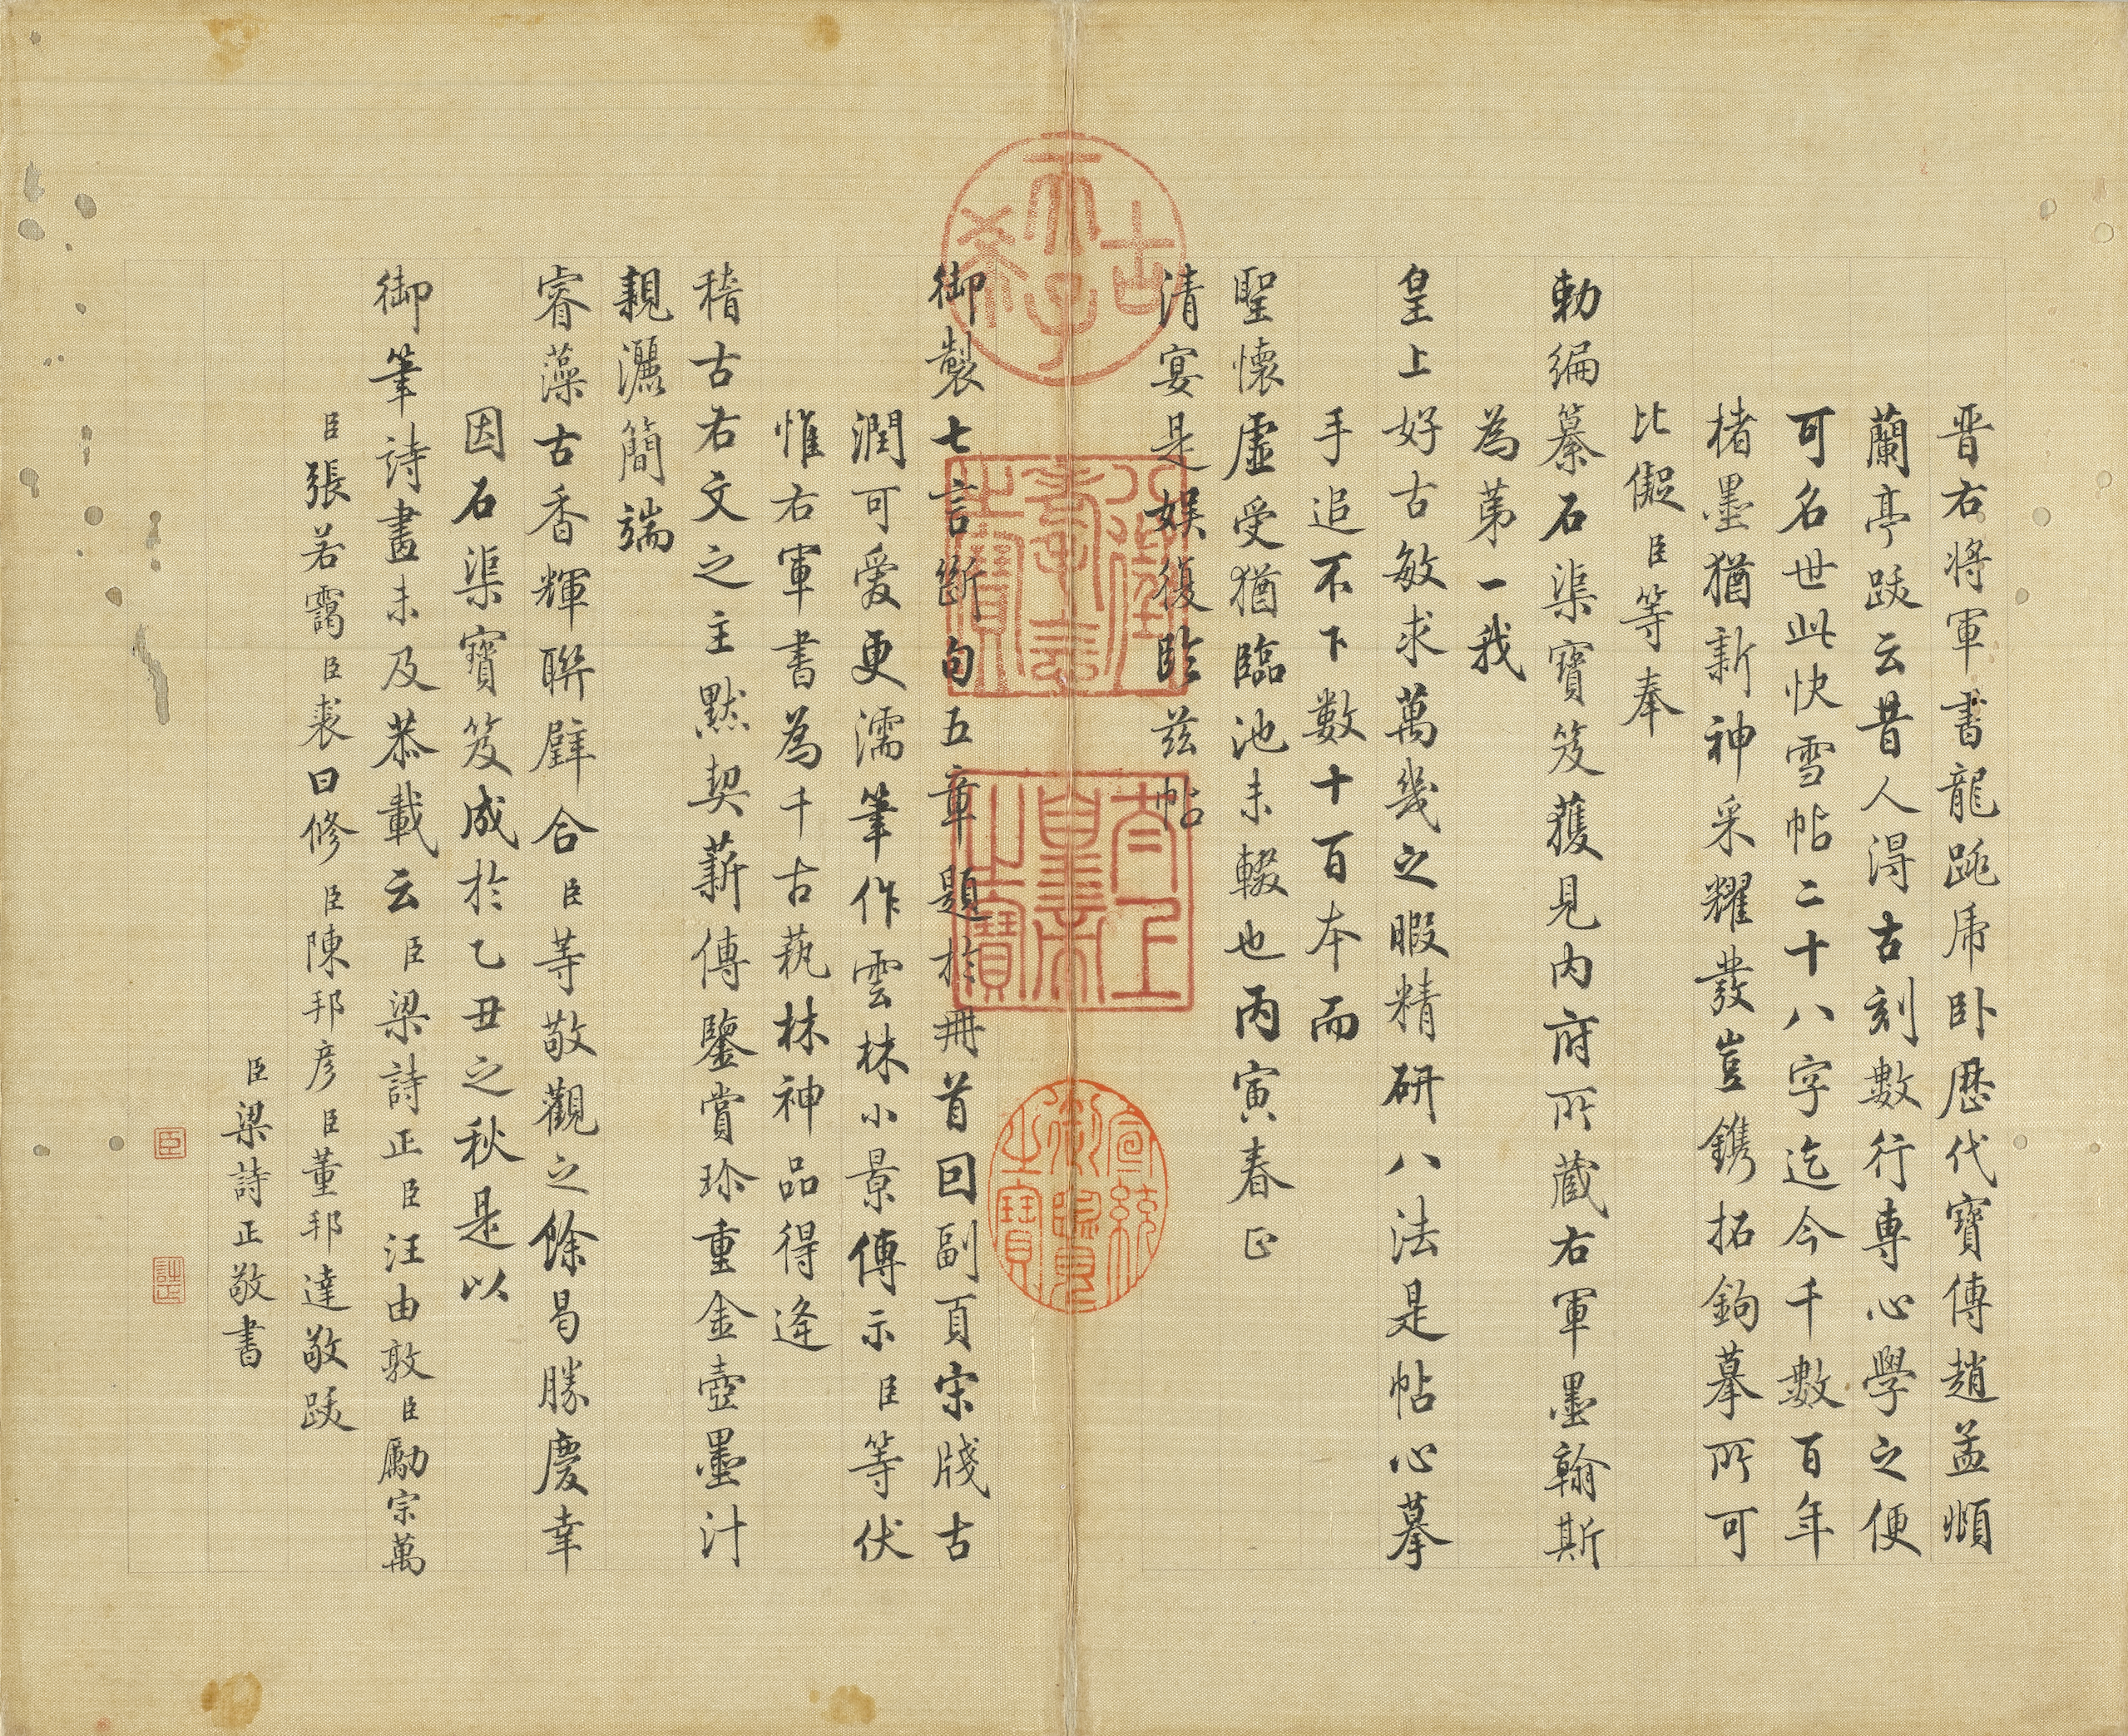 晋右将軍書龍跳虎卧歷代寶傳趙孟頫
蘭亭跋云昔人得古刻數行専心學之便
可名世此快雪帖二十八字迄今千數百年
楮墨猶新神采耀發豈鐫拓鉤摹所可
比儗臣等奉
勅編纂石渠寶笈獲見内府所蔵右軍墨翰斯
為第一我
皇上好古敏求萬幾之暇精研八法是帖心摹
手追不下數十百本而
聖懷虛受猶臨池未輟也丙寅春正
清宴是娱復臨兹帖
御製七言斷句五章題於冊首回副頁宋牋古
潤可愛更濡筆作雲林小景傳示臣等伏
惟右軍書為千古藝林神品得逢
稽古右文之主默契薪傳鑒賞珍重金壺墨汁
親灑簡端
睿藻古香輝聨璧合臣等敬觀之餘曷勝慶幸
因石渠寶笈成於乙丑之秋是以
御筆詩畫未及恭載云臣梁詩正臣汪由敦臣勵宗萬
臣張若靄臣裘曰修臣陳邦彦臣董邦達敬跋
臣梁詩正敬書
古希天子
八徵耄念之寶
太上皇帝之寶
宣統御覽之寶
臣
詩正